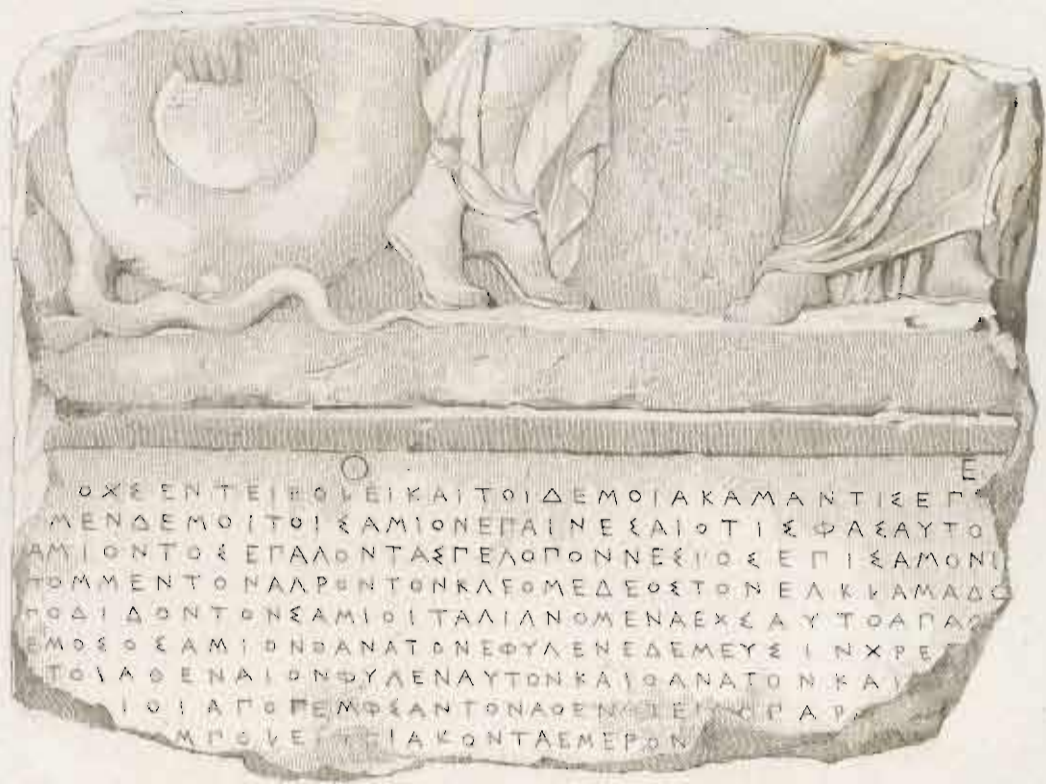 Ο Ε
ΟΧΣΕΝΤΕΙΒΟΛΕΙΚΑΙΤΟΙΔΕΜΟΙΑΚΑΜΑΝΤΙΣΕΠ
ΜΕΝΔΕΜΟΙΤΟΙΣΑΜΙΟΝΕΠΑΙΝΕΣΑΙΟΤΙΣΦΑΣΑΥΤΟ
ΑΜΙΟΝΤΟΣΕΠΑΛΟΝΤΑΣΠΕΛΟΠΟΝΝΕΣΙΟΣΕΠΙΣΑΜΟΝ
ΤΟΜΜΕΝΤΟΝΑΛΡΟΝΤΟΝΚΛΕΟΜΕΔΕΟΣΤΟΝΕΛΚΛΑΜΑΔΟ
ΠΟΔΙΔΟΝΤΟΝΣΑΜΙΟΙΤΑΛΙΛΝΟΜΕΝΑΕΧΣΑΥΤΟΑΠΑ
ΕΜΟΣΟΣΑΜΙΟΝΘΑΝΑΤΟΝΕΦΥΛΕΝΕΔΕΜΕΥΣΙΝΧΡΕ
ΤΟΙΑΘΕΝΑΙΟΝΦΥΛΕΝΑΥΤΟΝΚΑΙΘΑΝΑΤΟΝΚΑΙ
ΙΟΙΑΠΟΠΕΜΦΣΑΝΤΟΝΑΘΕΝ ΠΑΡ
ΜΠΟΛΕ ΙΑΚΟΝΤΑΕΜΕΡΟΝ